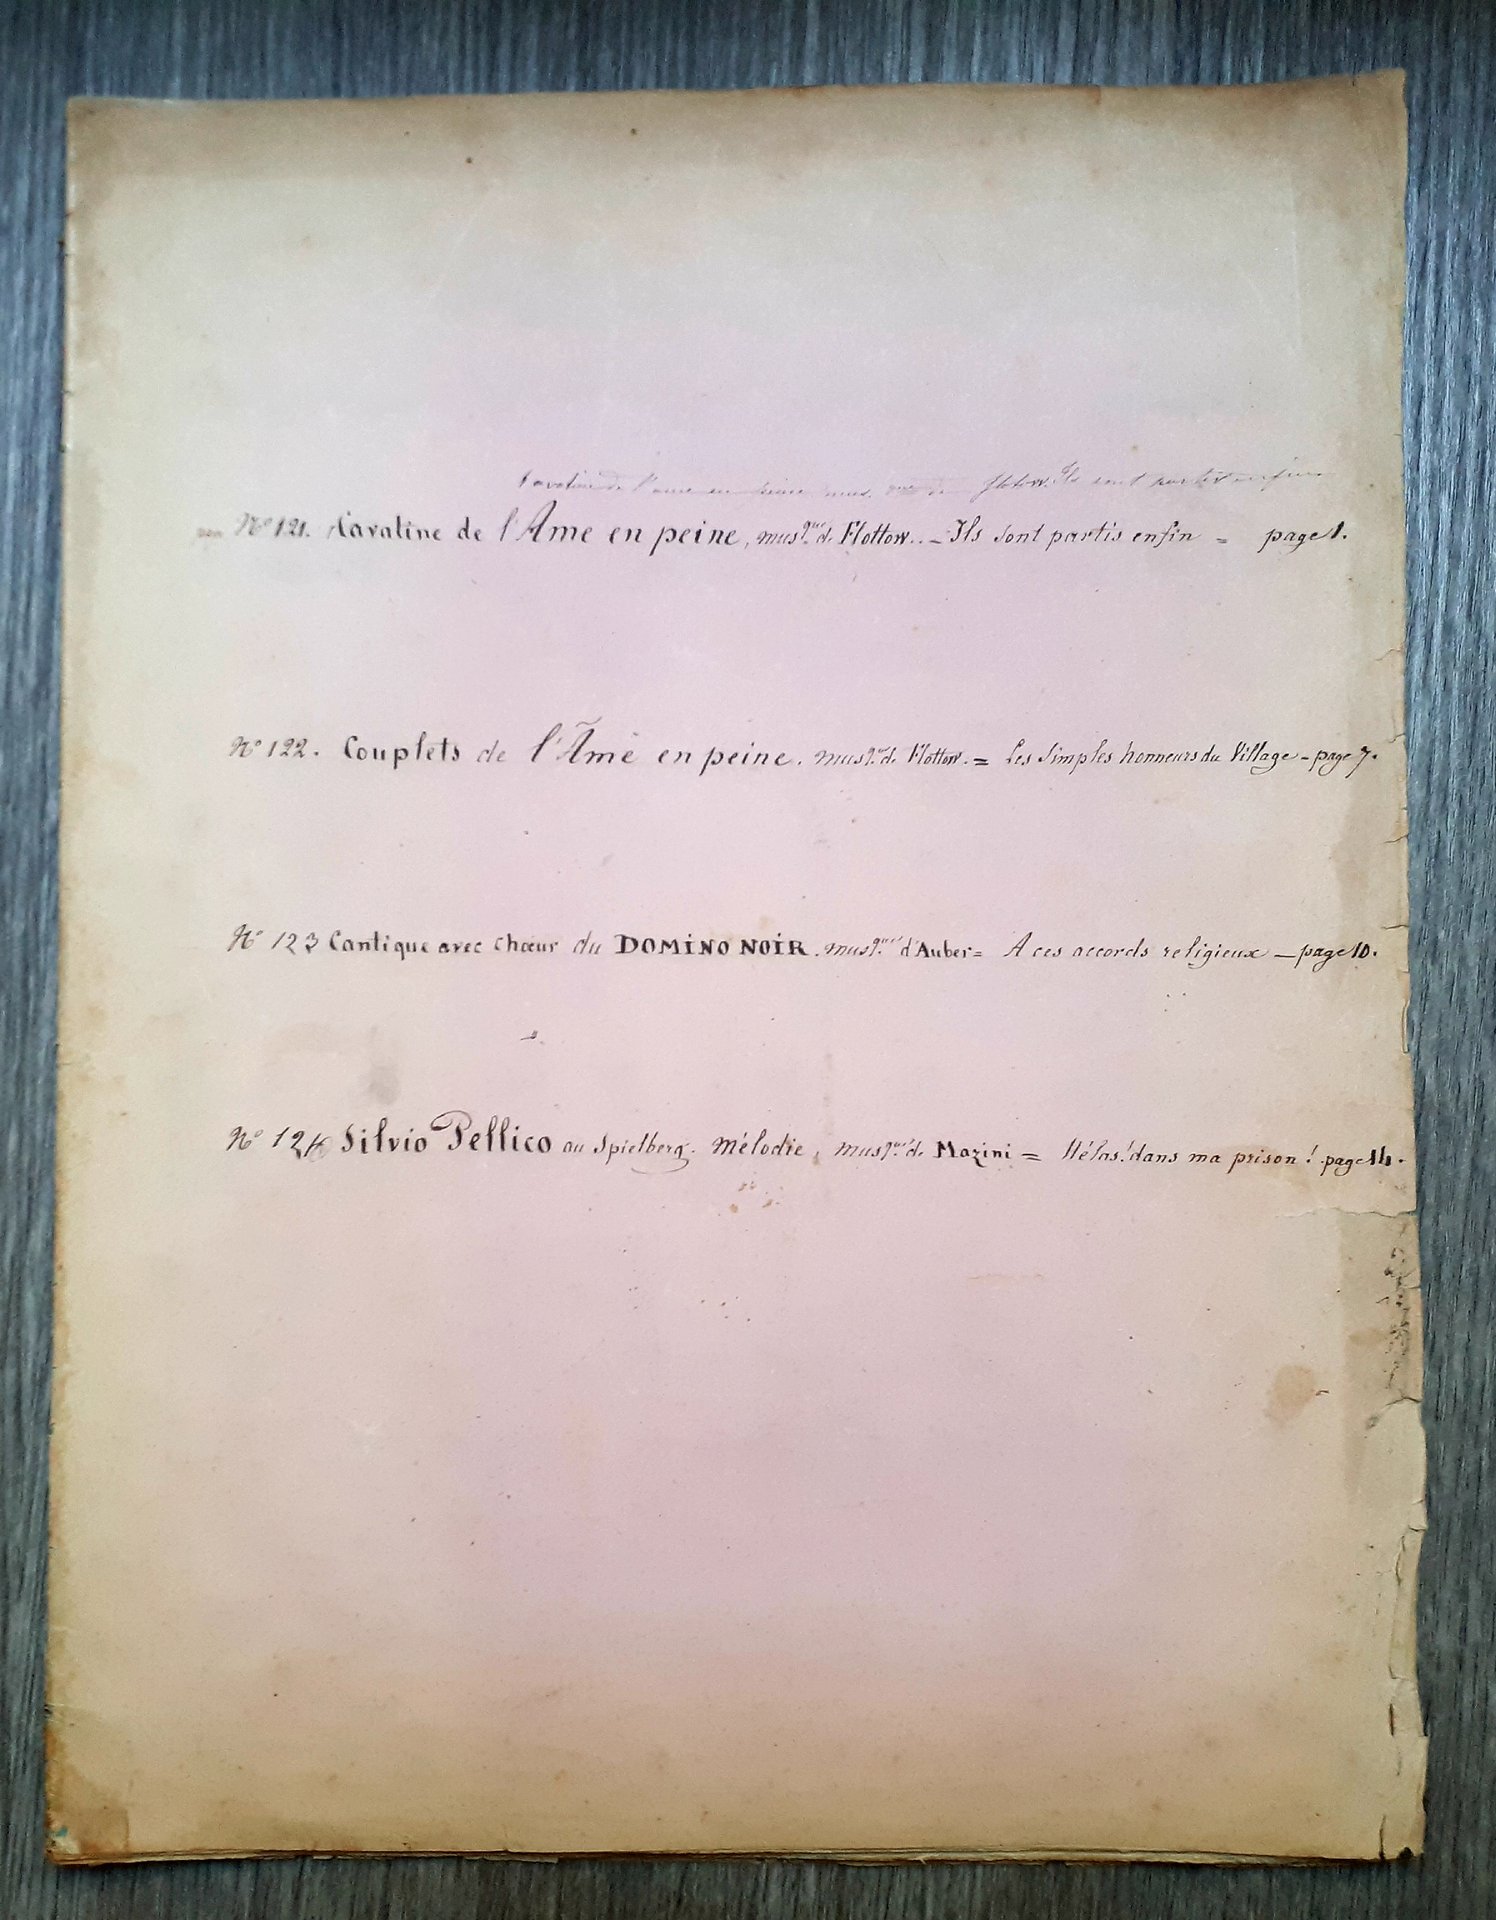 Cavatine de l'ame en peine mus. que de flotow. Ils sont partis enfin
N° 121. Cavatine de l'Ame en peine, musq.ue de Flottow.. - Ils sont partis enfin = page 1.
N° 122. Couplets de l'Âme en peine. musq.ue de Flottow. = Les simples honneurs du Village - page 7.
N° 123 Cantique avec Chœur du DOMINO NOIR. musq.ue d'Auber = A ces accords religieux - page 10.
N° 124 Silvio Pellico au Spielberg. Mélodie, musq.ue de Mazini = Hélas! dans ma prison! page 14.